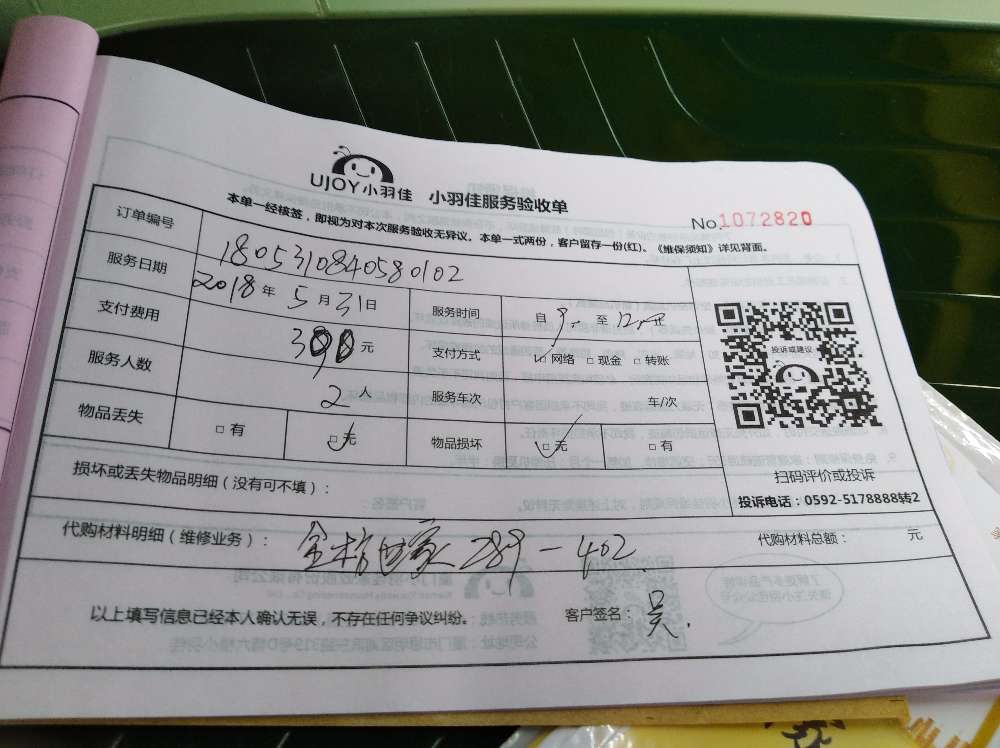 UJOY小羽佳 小羽佳服务验收单
No.1072820
本单一经核签，即视为对本次服务验收无异议。本单一式两份，客户留存一份(红)。《维保须知》详见背面。
订单编号 1805310840580102
服务日期 2018年5月31日 服务时间 自9.至12.
支付费用 元 支付方式 ☑网络 □现金 □转账
服务人数 2人 服务车次 车/次
物品丢失 □有 ☑无 物品损坏 ☑无 □有
投诉或建议
扫码评价或投诉
投诉电话：0592-5178888转2
损坏或丢失物品明细（没有可不填）：
代购材料明细（维修业务）： 289-402 代购材料总额： 元
以上填写信息已经本人确认无误，不存在任何争议纠纷。 客户签名：吴.